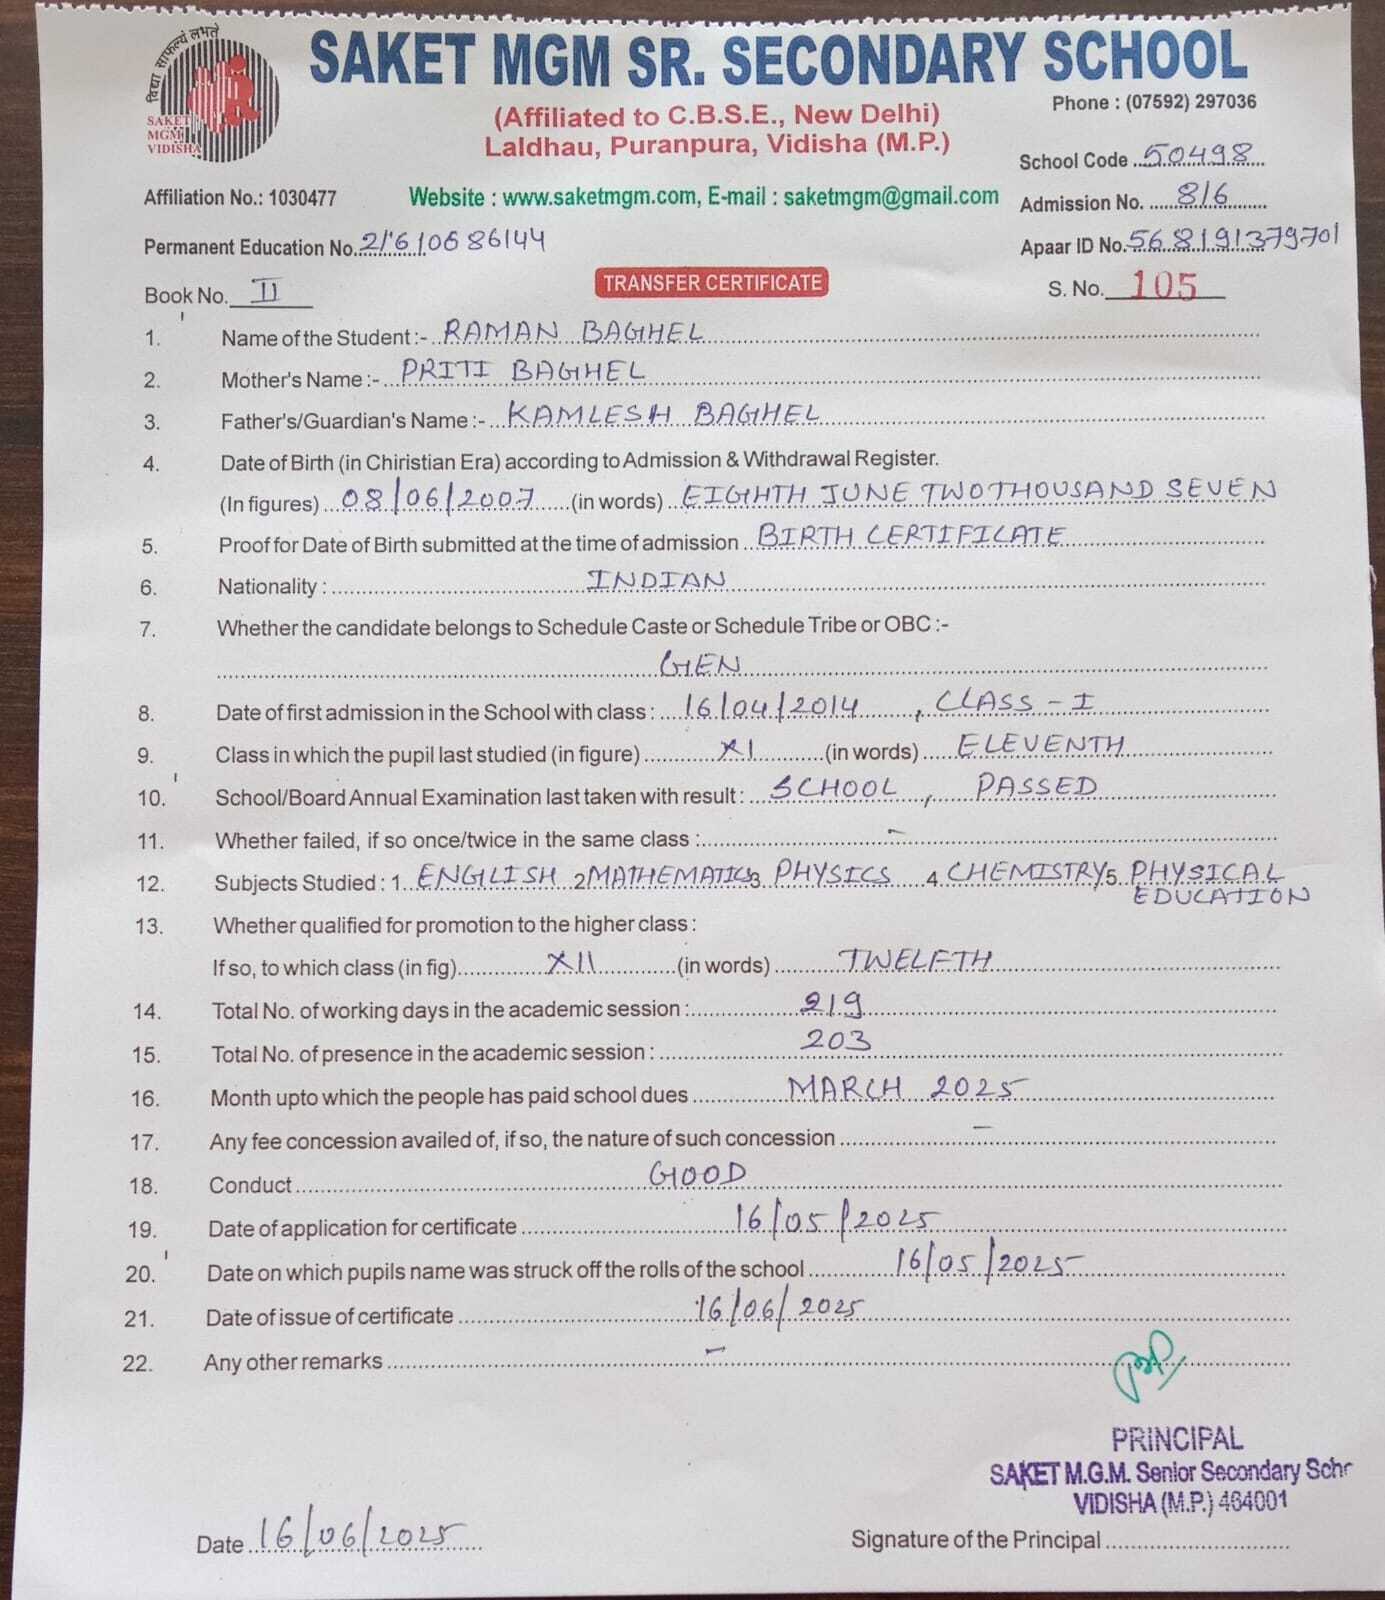 विद्या साफल्यं लभते
SAKET
MGM
VIDISHA
SAKET MGM SR. SECONDARY SCHOOL
(Affiliated to C.B.S.E., New Delhi)
Phone : (07592) 297036
Laldhau, Puranpura, Vidisha (M.P.)
School Code 50498
Affiliation No.: 1030477
Website : www.saketmgm.com, E-mail : saketmgm@gmail.com
Admission No. 816
Permanent Education No. 21610686144
Apaar ID No. 568191379701
Book No. II
TRANSFER CERTIFICATE
S. No. 105
1. Name of the Student :- RAMAN BAGHEL
2. Mother's Name :- PRITI BAGHEL
3. Father's/Guardian's Name :- KAMLESH BAGHEL
4. Date of Birth (in Chiristian Era) according to Admission & Withdrawal Register.
(In figures) 08/06/2007 (in words) EIGHTH JUNE TWO THOUSAND SEVEN
5. Proof for Date of Birth submitted at the time of admission BIRTH CERTIFICATE
6. Nationality : INDIAN
7. Whether the candidate belongs to Schedule Caste or Schedule Tribe or OBC :-
GEN
8. Date of first admission in the School with class : 16/04/2014, CLASS - I
9. Class in which the pupil last studied (in figure) XI (in words) ELEVENTH
10. School/Board Annual Examination last taken with result : SCHOOL, PASSED
11. Whether failed, if so once/twice in the same class : -
12. Subjects Studied : 1 ENGLISH 2 MATHEMATICS 3 PHYSICS 4 CHEMISTRY 5 PHYSICAL
EDUCATION
13. Whether qualified for promotion to the higher class :
If so, to which class (in fig) XII (in words) TWELFTH
14. Total No. of working days in the academic session : 219
15. Total No. of presence in the academic session : 203
16. Month upto which the people has paid school dues MARCH 2025
17. Any fee concession availed of, if so, the nature of such concession -
18. Conduct GOOD
19. Date of application for certificate 16/05/2025
20. Date on which pupils name was struck off the rolls of the school 16/05/2025
21. Date of issue of certificate 16/06/2025
22. Any other remarks -
PRINCIPAL
SAKET M.G.M. Senior Secondary Scho
VIDISHA (M.P.) 464001
Date 16/06/2025
Signature of the Principal